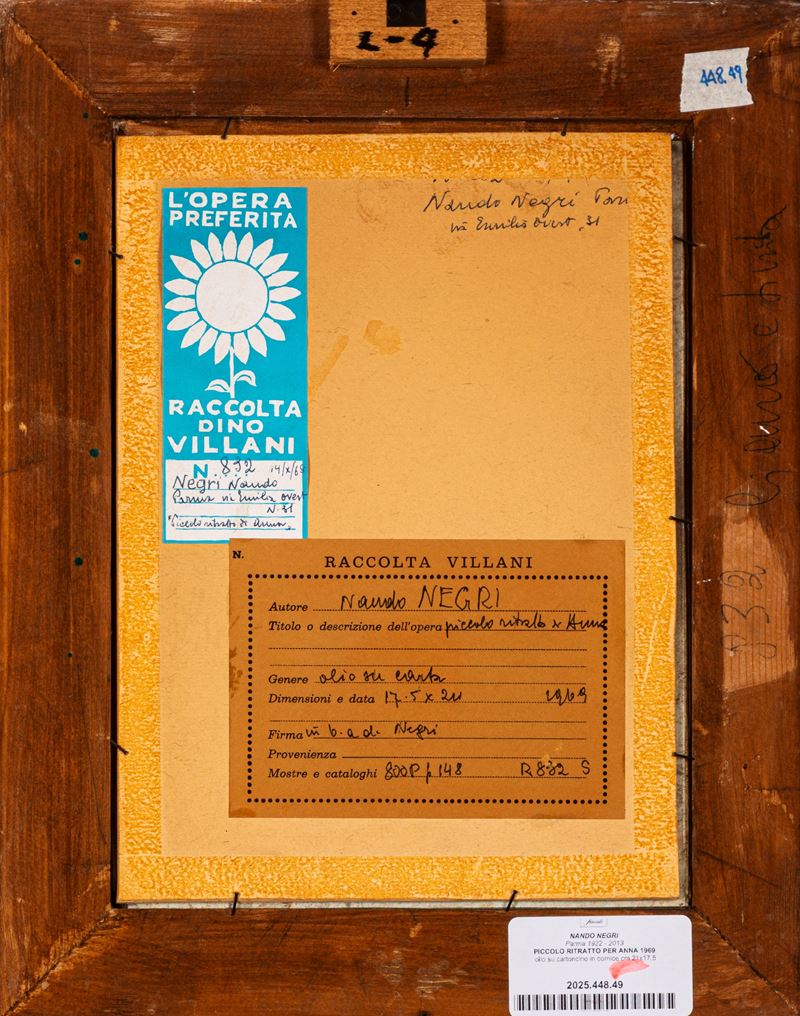 2-4
448.49
Nando Negri
via Emilia Ovest, 31
L'OPERA
PREFERITA
RACCOLTA
DINO
VILLANI
N. 832 14/X/69
Negri Nando
Parma via Emilia Ovest
N. 31
"Piccolo ritratto di Anna"
832
N.
RACCOLTA VILLANI
Autore Nando NEGRI
Titolo o descrizione dell'opera piccolo ritratto x Anna
Genere olio su carta
Dimensioni e data 17.5 x 24 1969
Firma in b. a d. Negri
Provenienza
Mostre e cataloghi 800P p 148 R 832 S
NANDO NEGRI
Parma 1922 - 2013
PICCOLO RITRATTO PER ANNA 1969
olio su cartoncino in cornice cm 21x17,5
2025.448.49